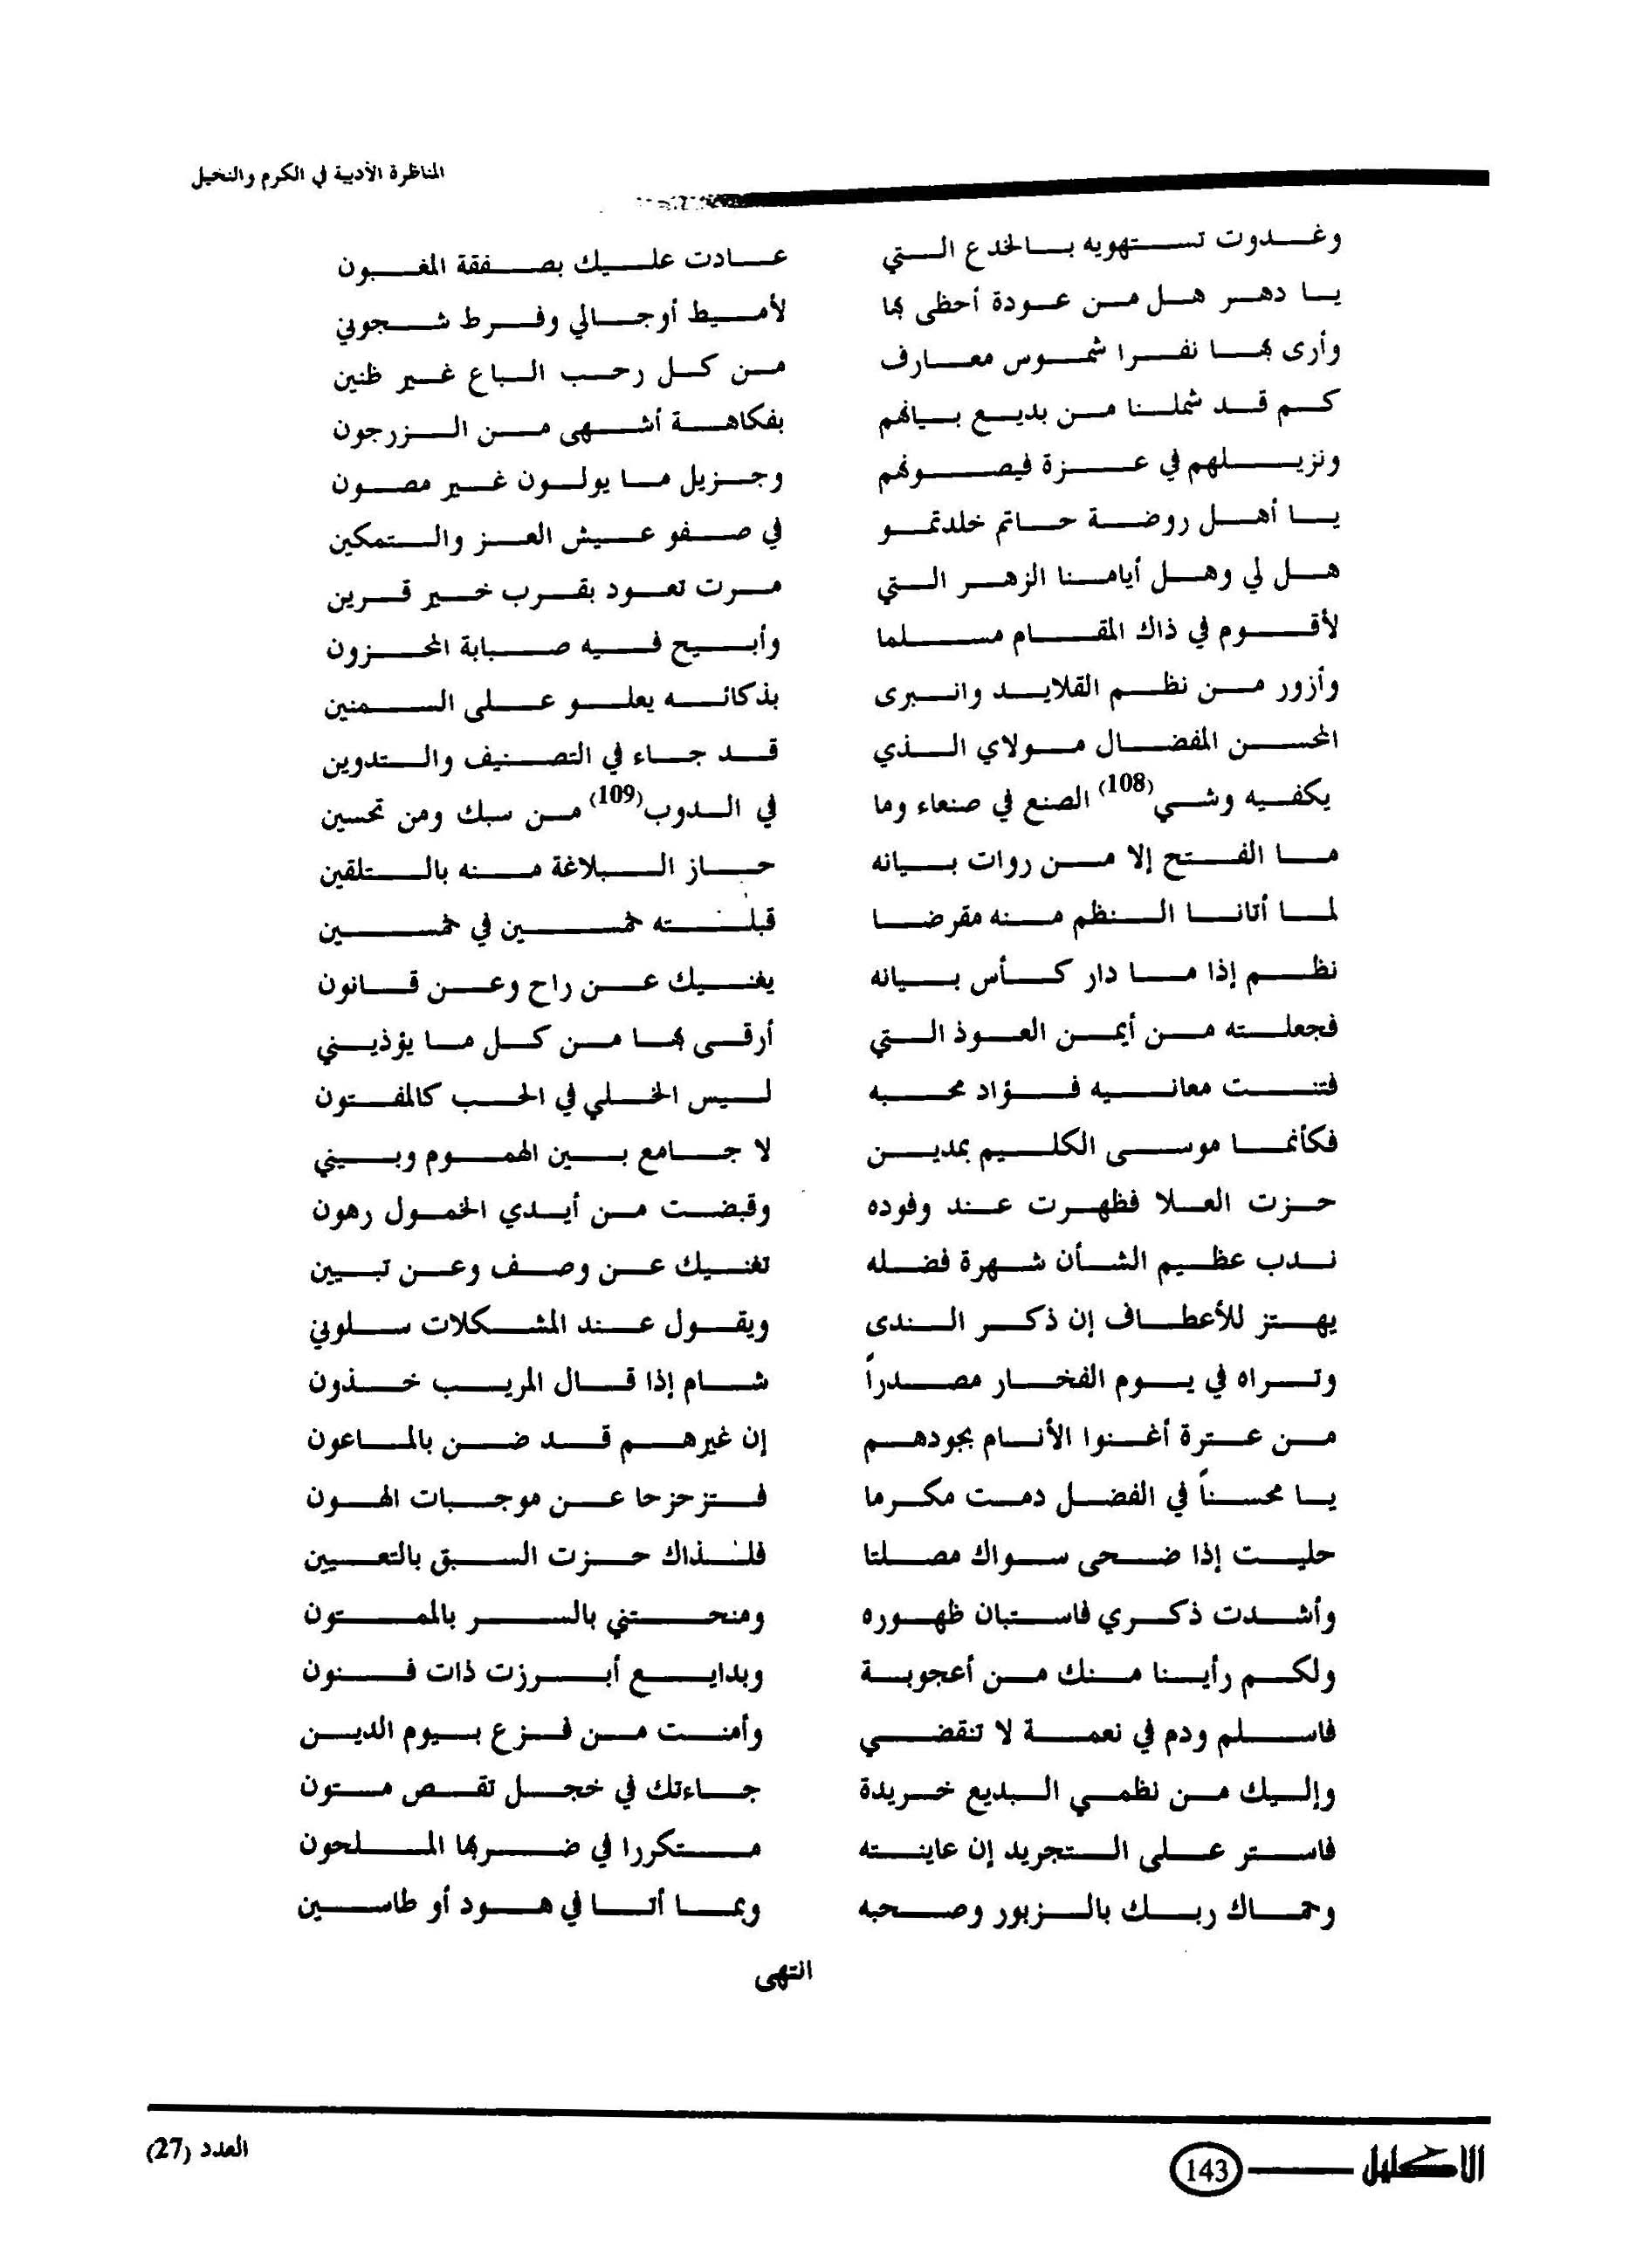 المناظرة الأدبية في الكرم والنخيل
وغدوت تستهويه بالخدع التي عادت عليك بصفقة المغبون
يا دهر هل من عودة أحظى بها لأميط أوجالي وفرط شجوني
وأرى بها نفرا شموس معارف من كل رحب الباع غير ظنين
كم قد شملنا من بديع بيانهم بفكاهة أشهى من الزرجون
ونزيلهم في عزة فيصونهم وجزيل ما يولون غير مصون
يا أهل روضة حاتم خلدتمو في صفو عيش العز والتمكين
هل لي وهل أيامنا الزهر التي مرت تعود بقرب خير قرين
لأقوم في ذاك المقام مسلما وأبيح فيه صبابة المحزون
وأزور من نظم القلايد وانبرى بذكائه يعلو على السمنين
المحسن المفضال مولاي الذي قد جاء في التصنيف والتدوين
يكفيه وشي(108) الصنع في صنعاء وما في الدوب(109) من سبك ومن تحسين
ما الفتح إلا من روات بيانه حاز البلاغة منه بالتلقين
لما أتانا النظم منه مقرضا قبلته خمسين في خمسين
نظم إذا ما دار كأس بيانه يغنيك عن راح وعن قانون
فجعلته من أيمن العوذ التي أرقى بها من كل ما يؤذيني
فتنت معانيه فؤاد محبه ليس الخلي في الحب كالمفتون
فكأنما موسى الكليم بمدين لا جامع بين الهموم وبيني
حزت العلا فظهرت عند وفوده وقبضت من أيدي الخمول رهون
ندب عظيم الشأن شهرة فضله تغنيك عن وصف وعن تبيين
يهتز للأعطاف إن ذكر الندى ويقول عند المشكلات سلوني
وتراه في يوم الفخار مصدراً شام إذا قال المريب خذون
من عترة أغنوا الأنام بجودهم إن غيرهم قد ضن بالماعون
يا محسناً في الفضل دمت مكرما فتزحزحا عن موجبات الهون
حليت إذا ضحى سواك مصلتا فلذاك حزت السبق بالتعيين
وأشدت ذكري فاستبان ظهوره ومنحتني بالسر بالممتون
ولكم رأينا منك من أعجوبة وبدايع أبرزت ذات فنون
فاسلم ودم في نعمة لا تنقضي وأمنت من فزع بيوم الدين
وإليك من نظمي البديع خريدة جاءتك في خجل تقص متون
فاستر على التجريد إن عاينته مستكررا في ضربها الملحون
وحماك ربك بالزبور وصحبه وبما أتا في هود أو طاسين
انتهى
الاكليل 143 العدد (27)